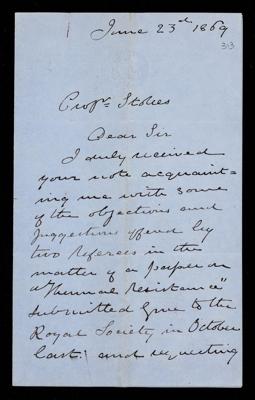 June 23rd 1869
313
Profr. Stokes
Dear Sir
I duly received
your note acquaint=
ing me with some
of the objections and
suggestions offered by
two Referees in the
matter of a paper on
"Thermal Resistance"
submitted by me to the
Royal Society in October
last: and requesting